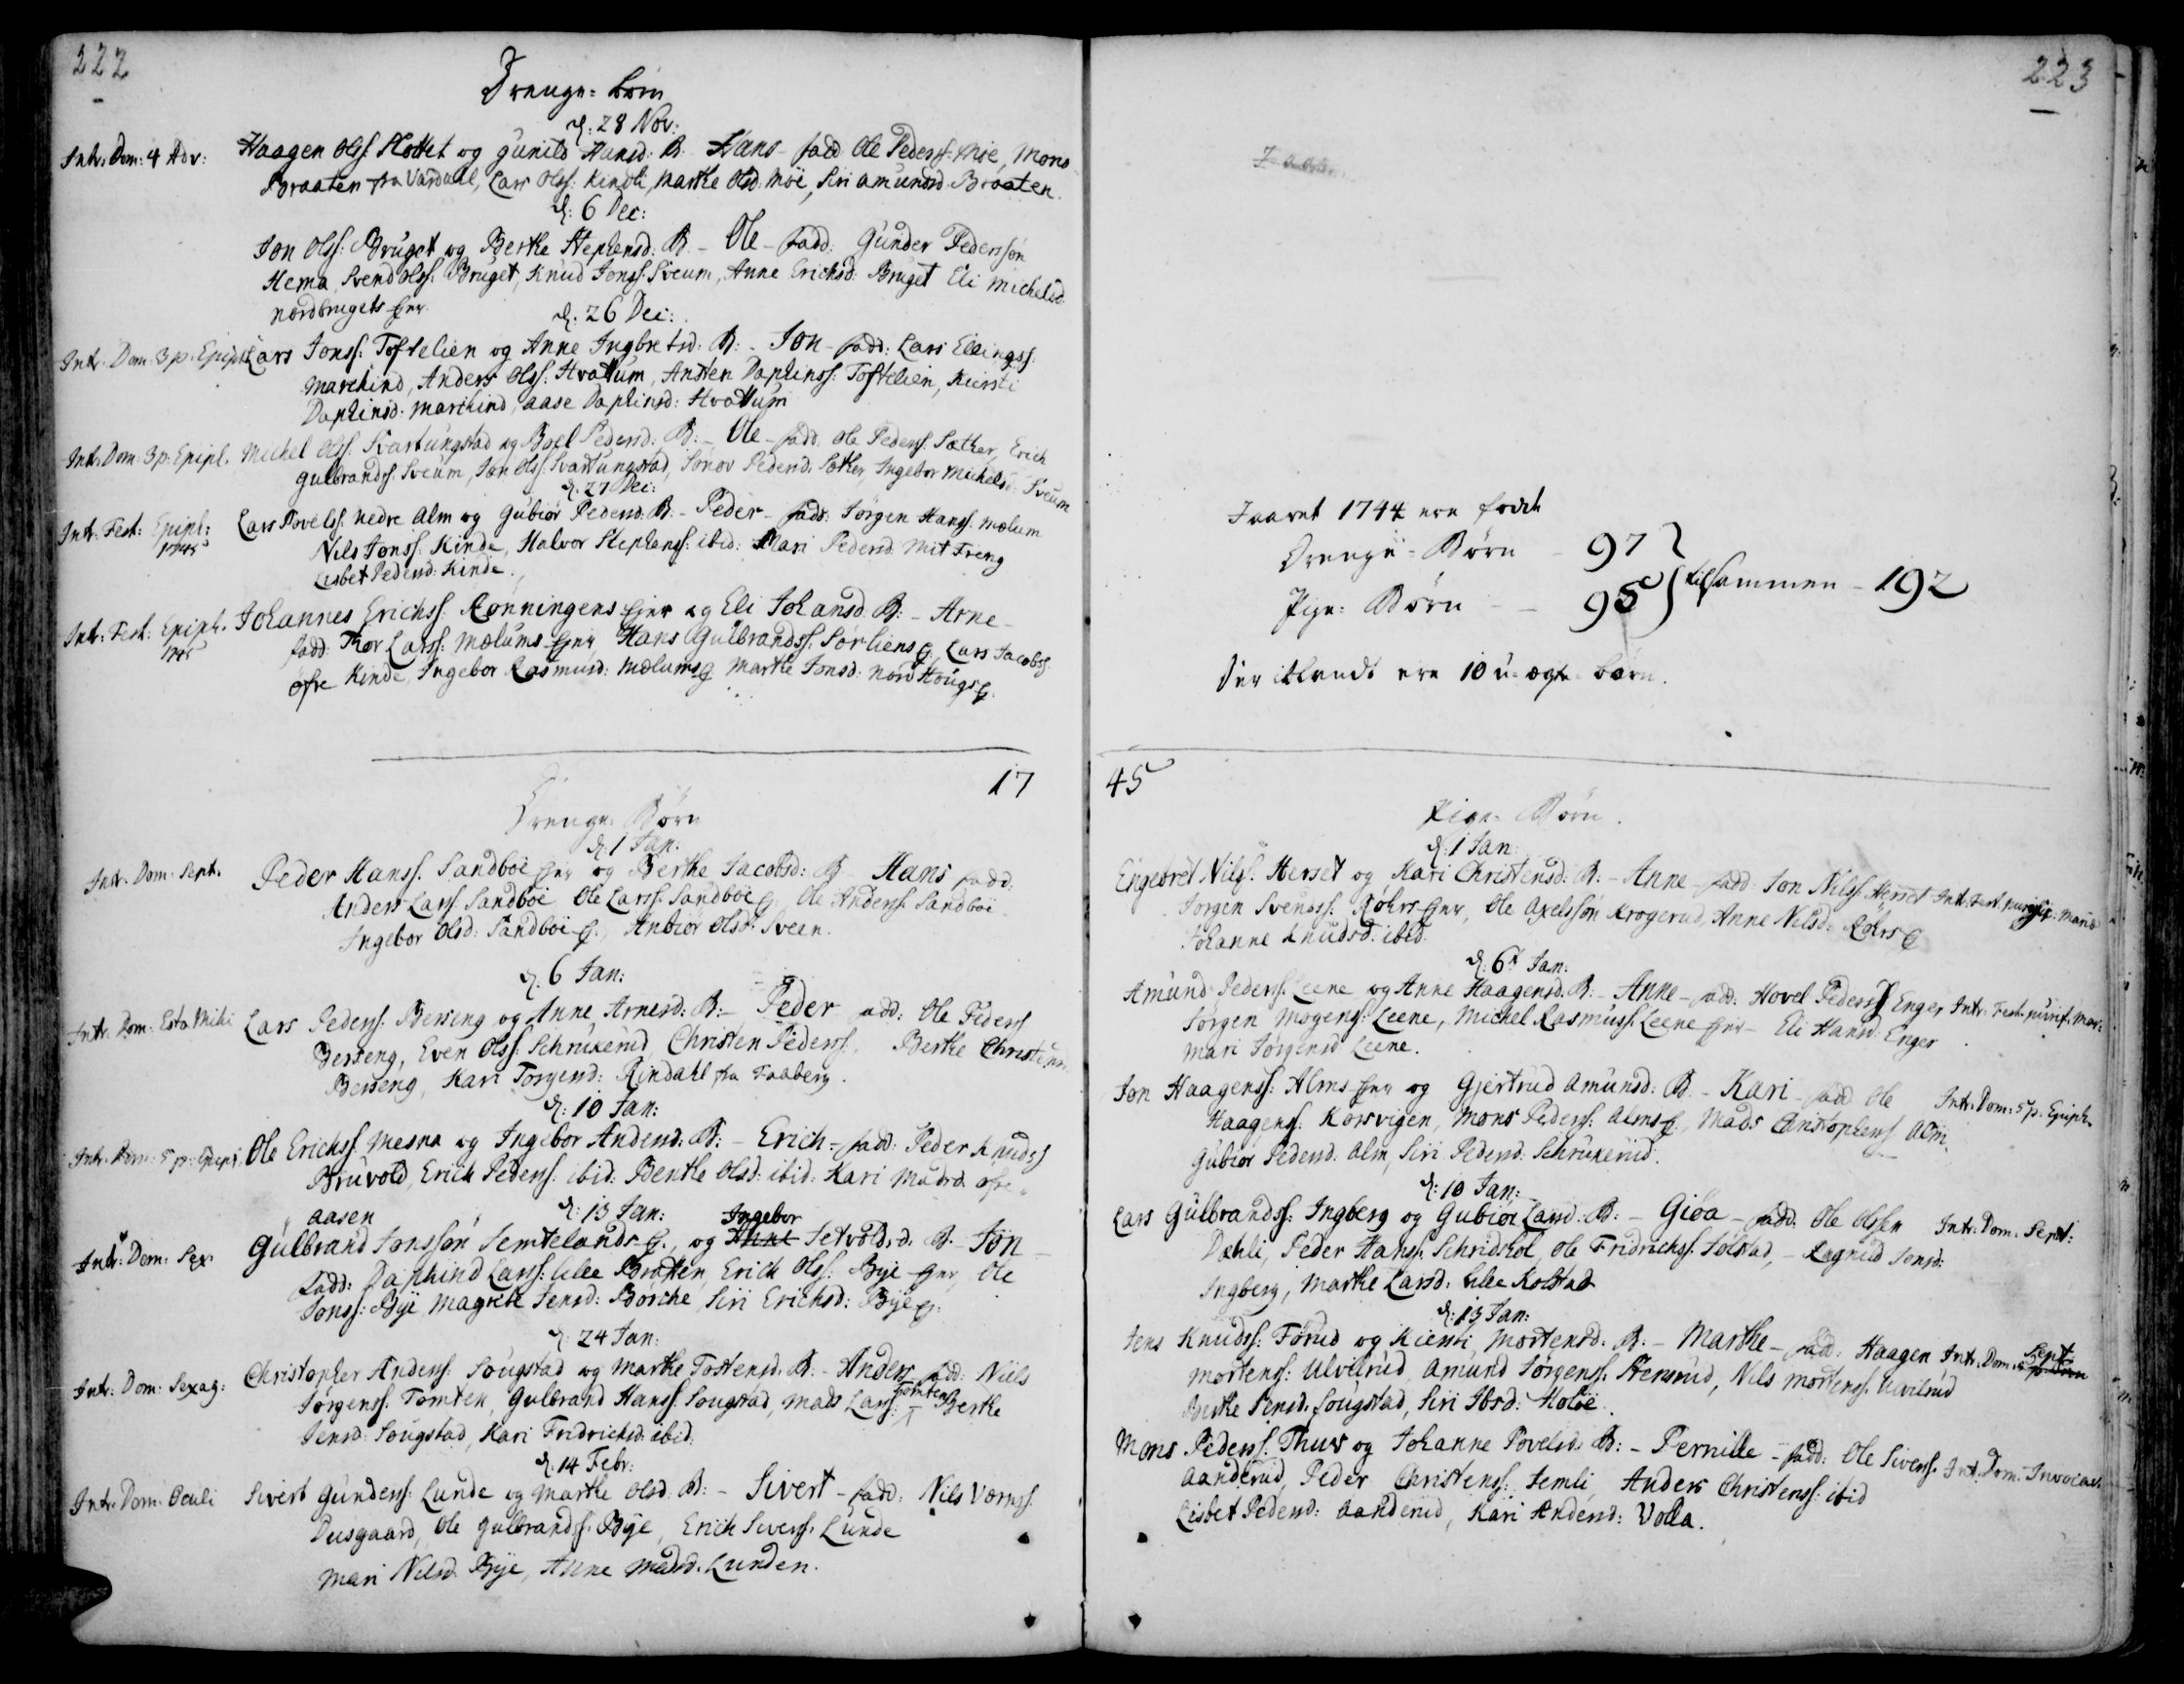 222
Drenge= børn
d: 28 Nov:
Intr. Dom: 4 Adv: Haagen Olss. Slottet og Gunild Hansd: B. Hans - fadd Ole Pederss. Moe, Mons
Braaten fra Vardahl, Lars Olss: Kindli, Marthe Olsd. Moe, Siri Amundsd. Braaten.
d: 6 Dec:
Jon Olss: Bruget og Berthe Stephensd: B. - Ole - fadd: Gunder Pederssøn
Hema, Svend Olss. Bruget, Knud Jonss. Sveum, Anne Erichsd: Bruget Eli Michelsd.
Nordbrugets eyer
d. 26 Dec:
Intr. Dom. 3 p. Epiph. Lars Jonss: Toftelien og Anne Ingbretsd. B: - Jon - fadd: Lars Ellingss.
Marchind, Anders Olss. Hvattum, Ansten Daphinss: Toftelien, Kiersti
Daphinsd. Marchind, Aase Daphinsd: Hvattum
Intr. Dom. 3 p: Epiph. Michel Olss. Svartungstad og Boel Pedersd: B: - Ole - fadd. Ole Pederss. Sæther, Erich
Gulbrandss. Sveum, Jon Olss. Svartungstad, Sønov Pedersd. Sæther, Ingebor Michelsd: Sveum
d. 27 Dec:
Intr. Fest: Epiph: 1745 Lars Povelss. Nedre Alm og Gubiør Pedersd. B. - Peder - fadd: Jørgen Hanss. Mælum
Nils Jonss. Kinde, Halvor Stephenss: ibid: Mari Pedersd. Mit Freng
Lisbet Pedersd: Kinde.
Intr: Fest: Epiph. 1745 Johannes Erichss. Rønningens eyer og Eli Johansd. B: - Arne -
fadd: Thor Larss: Mælums eyer, Hans Gulbrandss: Sørliens e: Lars Jacobss.
øfre Kinde, Ingebor Rasmusd: Mælums e Marthe Jonsd: Nord Hougs e.
17
Drenge= Børn
d: 1 Jan:
Intr. Dom. Sept. Peder Hanss. Sandboe eyer og Berthe Jacobsd: B Hans fadd:
Anders Larss. Sandboe Ole Larss. Sandboe e. Ole Anderss. Sandboe
Ingebor Olsd: Sandboe e., Anbiør Olsd: Sveen.
d. 6 Jan:
Intr. Dom: Esto Mihi Lars Pederss. Berseng og Anne Arnesd: B: - Peder fadd: Ole Pederss
Berseng, Even Olss: Schruxerud, Christen Pederss. Berthe Christensd.
Berseng, Kari Torgersd: Rindahl fra Faaberg.
d: 10 Jan:
Intr. Dom: 5 p: Epiph. Ole Erichss. Mesna og Ingebor Andersd: B: - Erich - fadd: Peder Knudss
Bruvold, Erich Pederss: ibid: Benthe Olsd: ibid: Kari Madsd. øfre
aasen
d: 13 Jan:
Intr: Dom: Sex Gulbrand Jonssøn Semtelands e., og Anne Ingebor Setvoldsd. B. - Jon -
fadd: Daphind Larss: Lille Bratten, Erich Olss: Bye eyer, Ole
Jonss: Bye, Magrete Jensd: Borche, Siri Erichsd: Bye e.
d: 24 Jan:
Intr: Dom: Sexag: Christopher Anderss. Sougstad og Marthe Tostensd. B. - Anders fad: Niils
Jørgenss. Tomten, Gulbrand Hanss. Sougstad, Mads Larss. Tomten Berthe
Jensd: Sougstad, Kari Fridrichsd: ibid:
d. 14 Febr:
Intr. Dom: Oculi Sivert Gunderss. Lunde og Marthe Olsd. B: - Sivert - fadd: Nils Værnss.
Dusgaard, Ole Gulbrandss. Bye, Erich Siverss. Lunde
Mari Nilsd. Bye, Anne Madsd. Lunden.
223
Jaar
Jaaret 1744 ere fødde
Drenge= Børn - 97
Pige= Børn - - 95 tilsammen - 192
Der iblandt ere 10 u-ægte børn.
45
Pige= Børn.
d: 1 Jan:
Engebret Nilss. Herset og Kari Christensd: B: - Anne - fadd: Jon Nilss. Herset Intr. Fest. purific: Mariæ
Jørgen Svendss. Røhrs eyer, Ole Axelssøn Krogerud, Anne Nilsd: Røhrs e
Johanne Knudsd. ibid.
d: 6 Jan:
Amund Pederss. Leene og Anne Haagensd. B. - Anne - fadd: Hovel Pederss Enger Intr. Fest. purif. Mar:
Jørgen Mogenss: Leene, Michel Rasmuss. Leene eyer - Eli Hansd. Enger
Mari Jørgensd Leene.
Jon Haagenss: Alms eyer og Gjertrud Amundsd: B. - Kari - fadd Ole Intr: Dom: 5 p: Epiph.
Haagenss. Korsvigen, Mons Pederss: Alms e., Mads Christophers Alm.
Gubiør Pedersd: Alm, Siri Pedersd: Schruxerud.
d: 10 Jan:
Lars Gulbrandss: Ingberg og Gubiør Larsd. B: - Giøa - fadd. Ole Olssen Intr: Dom. Sept:
Dæhli, Peder Hanss. Schridshol, Ole Fridrichss. Sølstad, - Ragnild Jensd:
Ingberg, Marthe Larsd: Lille Kolstad
d: 13 Jan:
Jens Knudss: Forud og Kiersti Mortensd: B: - Marthe - fad: Haagen Intr. Dom. Sept.
Mortenss: Ulvelrud, Amund Jørgenss. Stensrud, Nils Mortenss. Ulvilrud
Berthe Jensd. Sougstad, Siri Ibsd: Holøe.
Mons Pederss. Thuv og Johanne Povelsd: B: - Pernille - fadd: Ole Siverss. Int. Dom. Invocav.
Aanderud, Peder Christenss: Semli, Anders Christenss: ibid
Lisbet Pedersd: Aanderud, Kari Andersd: Volla.